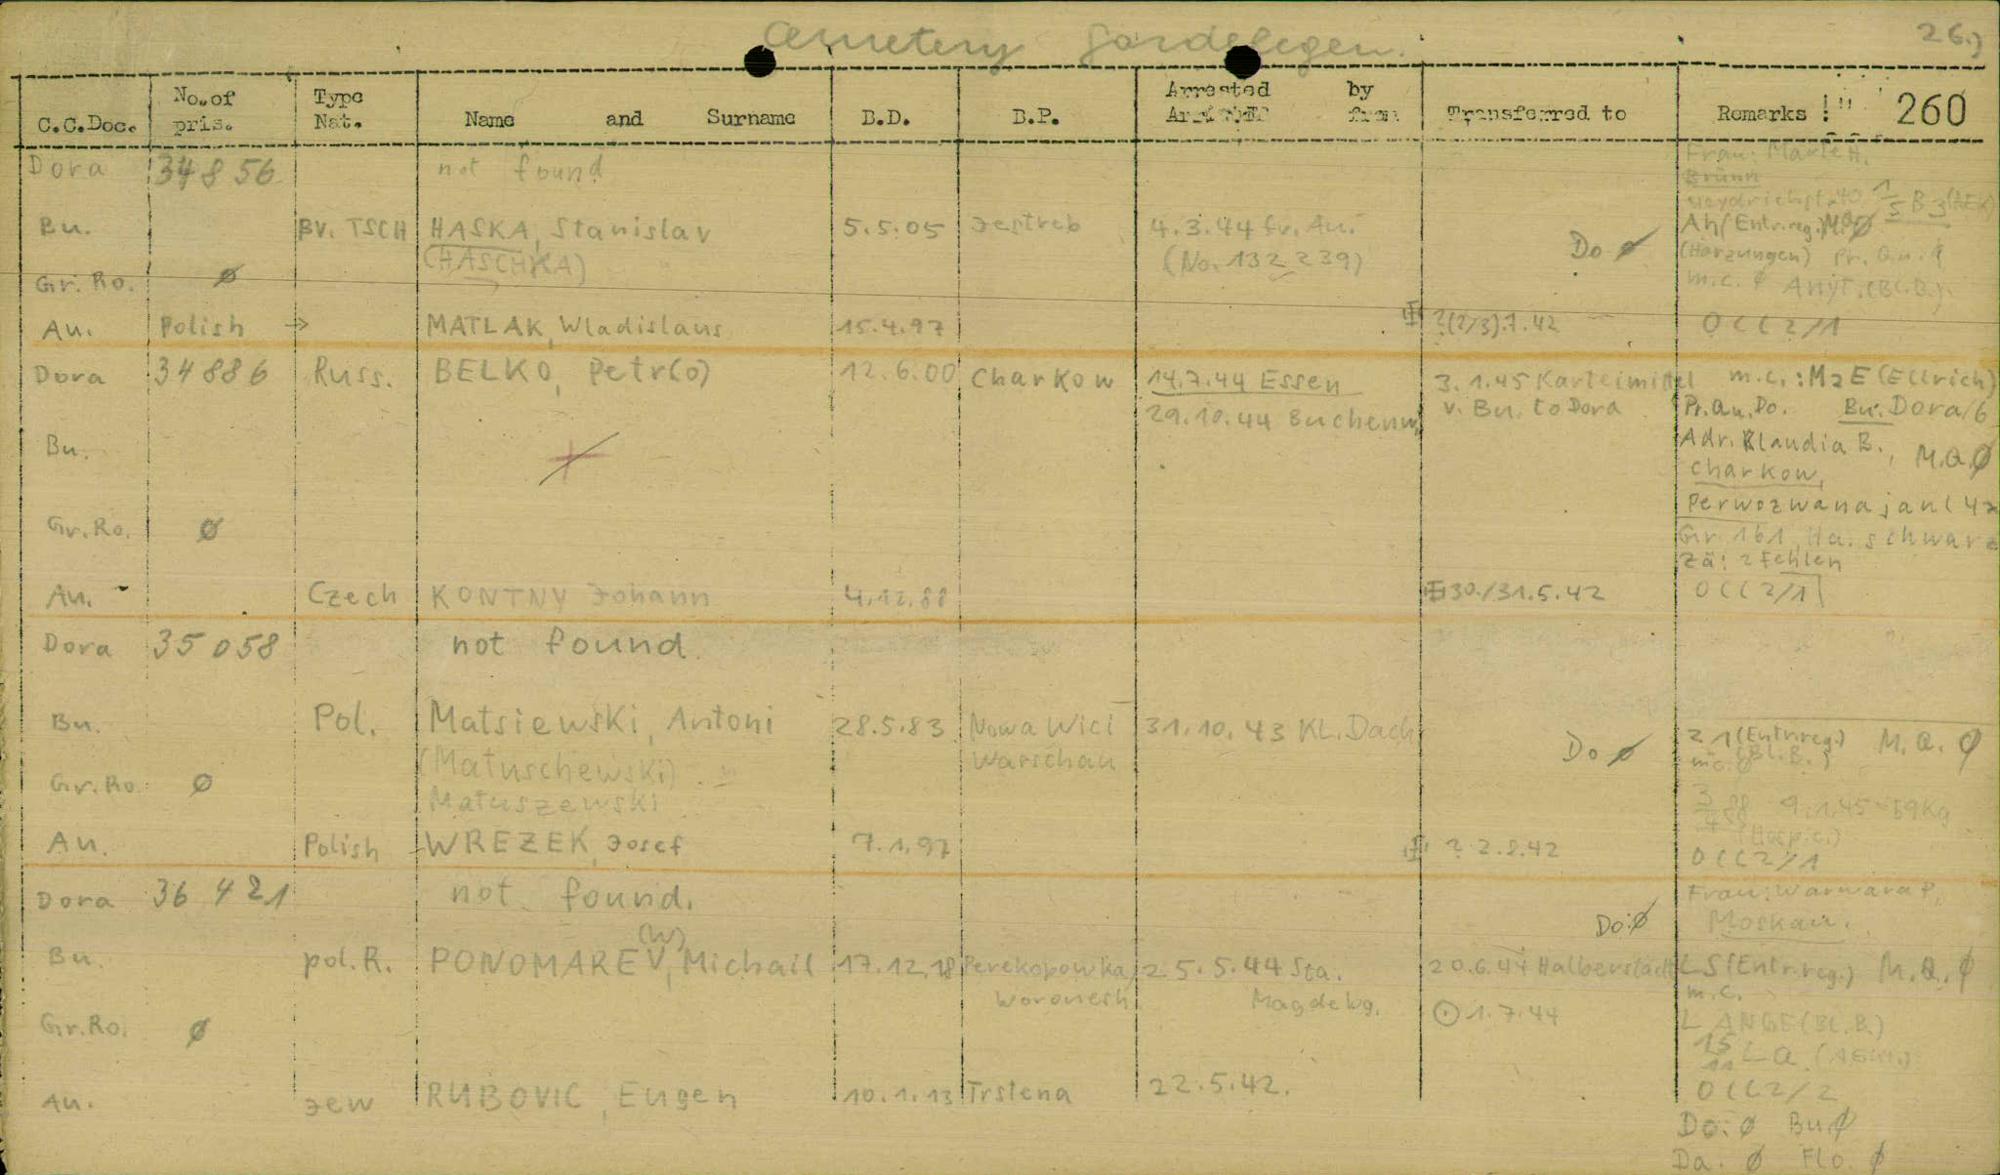 Cemetery Gardelegen. 26.)
C.C.Doc. No. of pris. Type Nat. Name and Surname B.D. B.P. Arrested by from Transferred to Remarks !!! 260
Dora 34856 not found Frau: Marie H.
Brünn
Bu. BV. TSCH HASKA, Stanislav 5.5.05 Jestreb 4.3.44 fr. Au. Do ø Ah (Entr.reg.) M.Q.ø
(HASCHKA) (No. 132239) (Harzungen) Pr. Qu.
Gr. Ro. ø m.c. ø (Bl.B.)
Au. Polish → MATLAK, Wladislaus 15.4.97 ?(2/3).7.42 OCC2/1
Dora 34886 Russ. BELKO, Petr(o) 12.6.00 Charkow 14.7.44 Essen 3.1.45 Karteimittel m.c.: M2E (Ellrich)
29.10.44 Buchenw. v. Bu. to Dora Pr.Qu.Do. Bu. Dora/6
Bu. Adr. Klaudia B., M.Q.ø
Charkow,
Perwozwanajan(42
Gr.Ro. ø Gr. 161, Ha. schwarz
Zä: 2 Fehlen
Au. Czech KONTNY Johann 4.12.88 30./31.5.42 OCC2/1
Dora 35058 not found
Bu. Pol. Matsiewski, Antoni 28.5.83 Nowa Wici 31.10.43 KL. Dach Do ø 21 (Entr.reg.) M.Q. ø
(Matuschewski) Warschau m.c. ø (Bl.B.)
Gr.Ro. ø Matuszewski 9.1.45 - 59Kg
Au. Polish WREZEK, Josef 7.1.97 ? 2.8.42 OCC2/1
Dora 36421 not found. Frau: Warwara P.,
Do: ø Moskau.
(W)
Bu. pol.R. PONOMAREV, Michail 17.12.18 Perekopowka, 25.5.44 Sta. 20.6.44 Halberstadt LS (Entr.reg.) M.Q. ø
Woronesh Magdebg. ⊙ 1.7.44 m.c.
Gr.Ro. ø LANGE (Bl.B.)
15/11 La.
Au. Jew RUBOVIC, Eugen 10.1.13 Trstena 22.5.42. OCC2/2
Do: ø Bu ø
Da. ø Flo ø